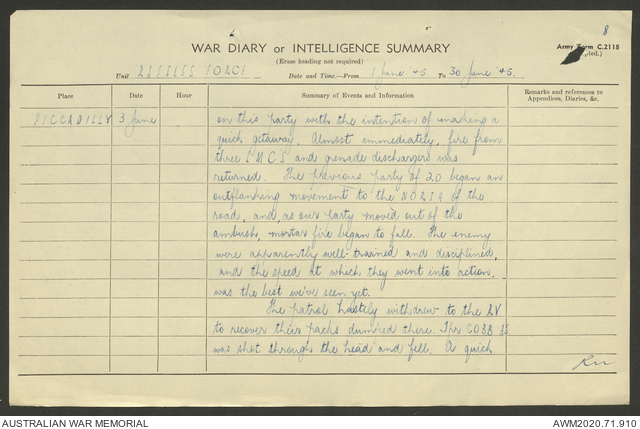 8
WAR DIARY or INTELLIGENCE SUMMARY
Army Form C.2118
(Erase heading not required)
Unit FORCE Date and Time.—From 1 June '45 To 30 June '45.
Place Date Hour Summary of Events and Information Remarks and references to Appendices, Diaries, &c.
PICCADILLY 3 June on this party with the intention of making a
quick getaway. Almost immediately, fire from
three LMCS and grenade dischargers was
returned. The previous party of 20 began an
outflanking movement to the NORTH of the
road, and, as our party moved out of the
ambush, mortar fire began to fall. The enemy
were apparently well-trained and disciplined,
and the speed at which they went into action,
was the best we've seen yet.
The patrol hastily withdrew to the RV
to recover their packs dumped there. Tpr COBB
was shot through the head and fell. A quick
AUSTRALIAN WAR MEMORIAL AWM2020.71.910